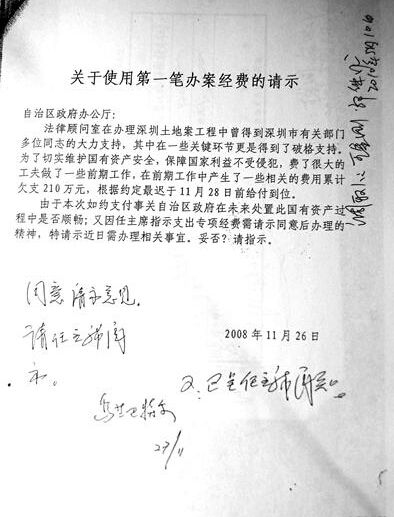 关于使用第一笔办案经费的请示
自治区政府办公厅：
法律顾问室在办理深圳土地案工程中曾得到深圳市有关部门
多位同志的大力支持，其中在一些关键环节更是得到了破格支持。
为了切实维护国有资产安全，保障国家利益不受侵犯，费了很大的
工夫做了一些前期工作，在前期工作中产生了一些相关的费用累计
欠支 210 万元，根据约定最迟于 11 月 28 日前给付到位。
由于本次如约支付事关自治区政府在未来处置此国有资产过
程中是否顺畅；又因任主席指示支出专项经费需请示同意后办理的
精神，特请示近日需办理相关事宜。妥否？请指示。
2008 年 11 月 26 日
同意请示意见。
请任主席阅
示。
乌兰巴特尔
27/11